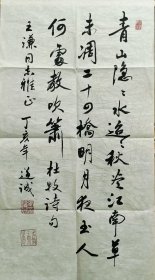 青山隐隐水迢迢秋尽江南草
未凋二十四桥明月夜玉人
何处教吹箫 杜牧诗句
王谦同志雅正 丁亥年 连诚